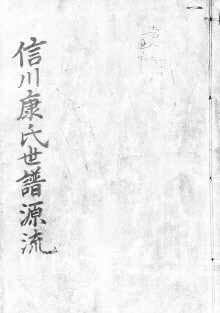 信川康氏世譜源流